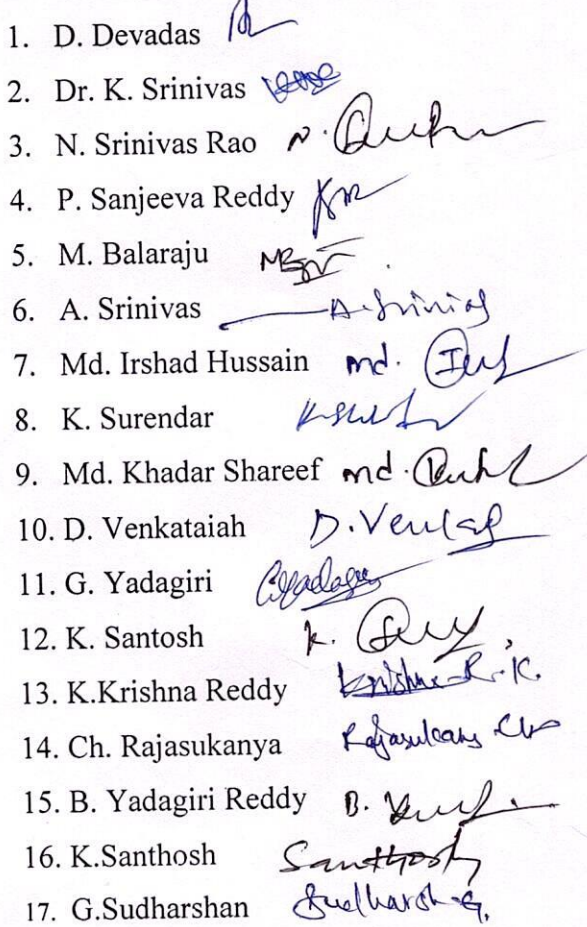 1. D. Devadas
2. Dr. K. Srinivas
3. N. Srinivas Rao N.
4. P. Sanjeeva Reddy
5. M. Balaraju
6. A. Srinivas A. Srinivas
7. Md. Irshad Hussain md.
8. K. Surendar
9. Md. Khadar Shareef md.
10. D. Venkataiah D.
11. G. Yadagiri
12. K. Santosh k.
13. K.Krishna Reddy Krishna R.K.
14. Ch. Rajasukanya
15. B. Yadagiri Reddy B.
16. K.Santhosh Santhosh
17. G.Sudharshan